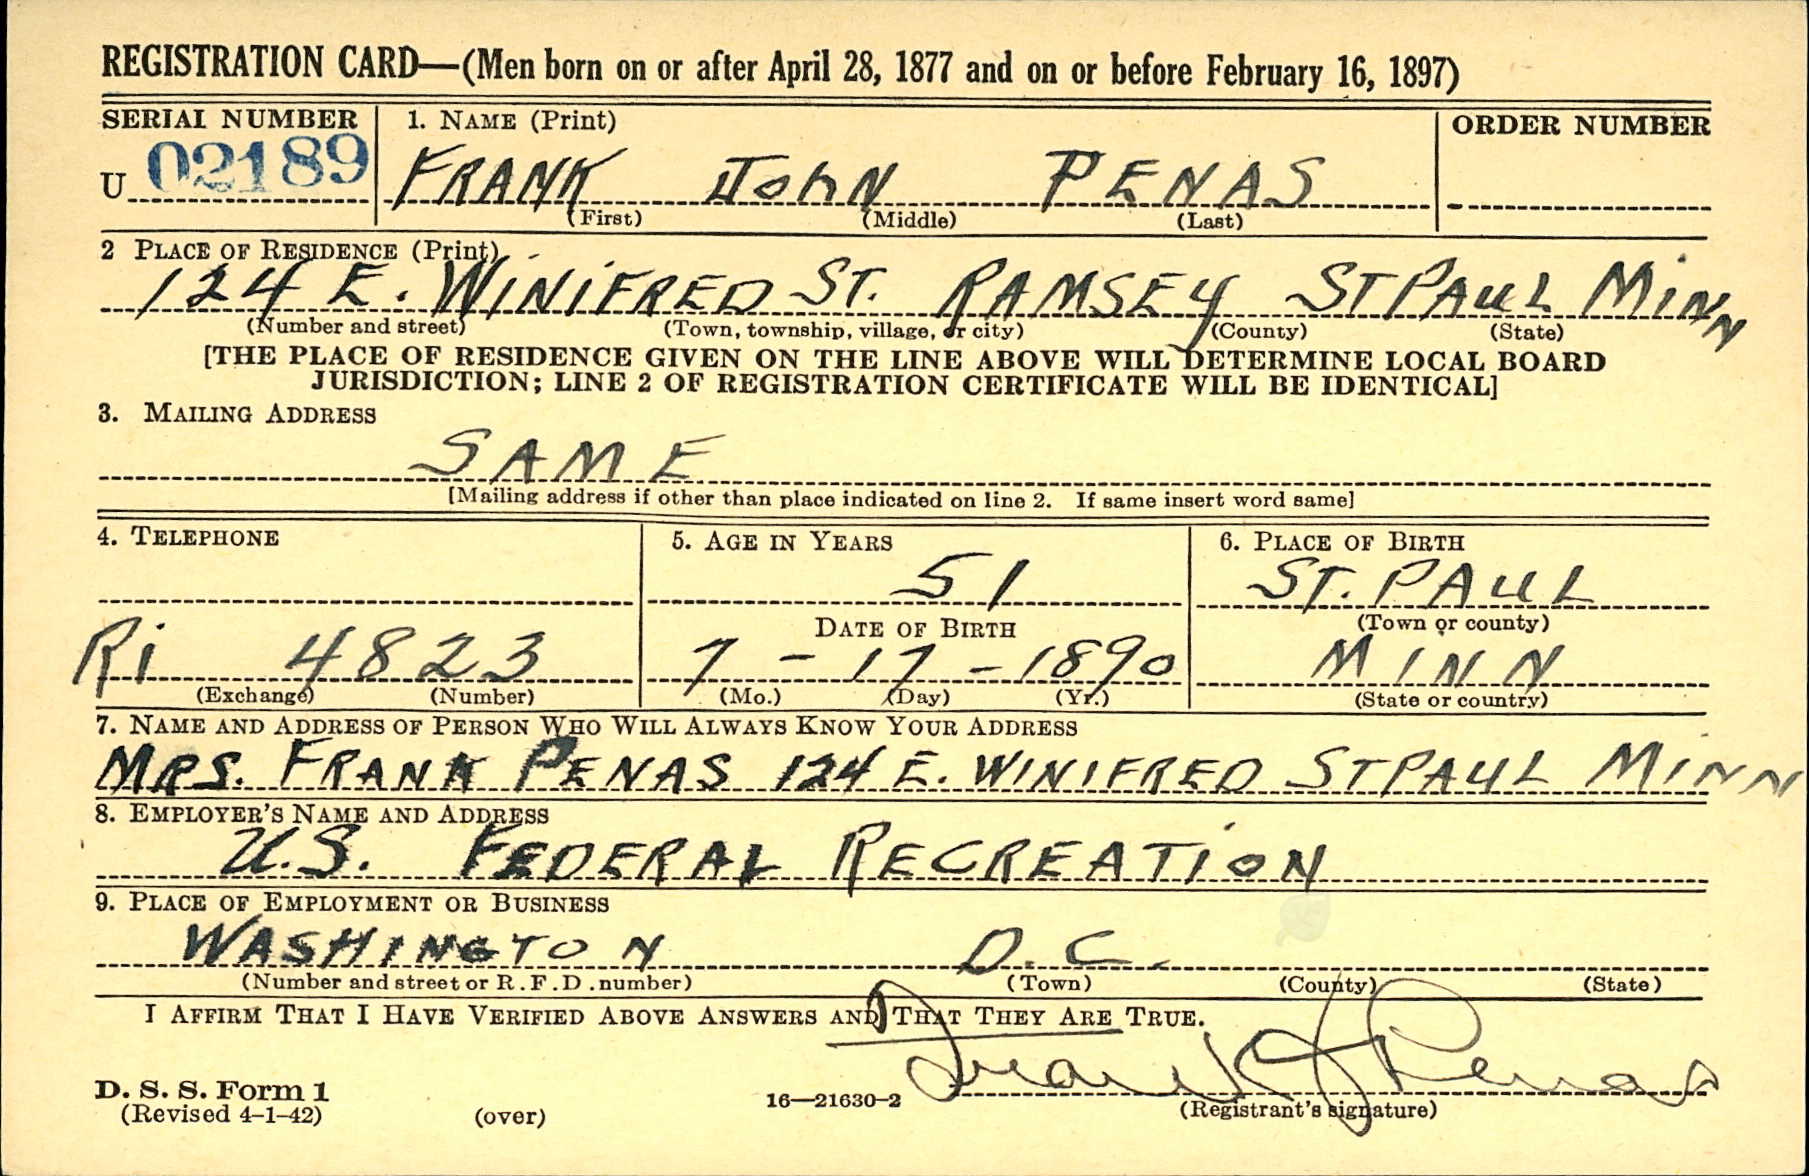 REGISTRATION CARD—(Men born on or after April 28, 1877 and on or before February 16, 1897)
SERIAL NUMBER 1. NAME (Print) ORDER NUMBER
U 02189 FRANK JOHN PENAS
(First) (Middle) (Last)
2 PLACE OF RESIDENCE (Print)
124 E. WINIFRED ST. RAMSEY ST PAUL MINN
(Number and street) (Town, township, village, or city) (County) (State)
[THE PLACE OF RESIDENCE GIVEN ON THE LINE ABOVE WILL DETERMINE LOCAL BOARD
JURISDICTION; LINE 2 OF REGISTRATION CERTIFICATE WILL BE IDENTICAL]
3. MAILING ADDRESS
SAME
[Mailing address if other than place indicated on line 2. If same insert word same]
4. TELEPHONE 5. AGE IN YEARS 6. PLACE OF BIRTH
51 ST. PAUL
DATE OF BIRTH (Town or county)
Ri 4823 7-17-1890 MINN
(Exchange) (Number) (Mo.) (Day) (Yr.) (State or country)
7. NAME AND ADDRESS OF PERSON WHO WILL ALWAYS KNOW YOUR ADDRESS
MRS. FRANK PENAS 124 E. WINIFRED ST PAUL MINN
8. EMPLOYER'S NAME AND ADDRESS
U.S. FEDERAL RECREATION
9. PLACE OF EMPLOYMENT OR BUSINESS
WASHINGTON D.C.
(Number and street or R.F.D. number) (Town) (County) (State)
I AFFIRM THAT I HAVE VERIFIED ABOVE ANSWERS AND THAT THEY ARE TRUE.
Frank J Penas
D. S. S. Form 1
(Revised 4-1-42) (over) 16—21630-2 (Registrant's signature)